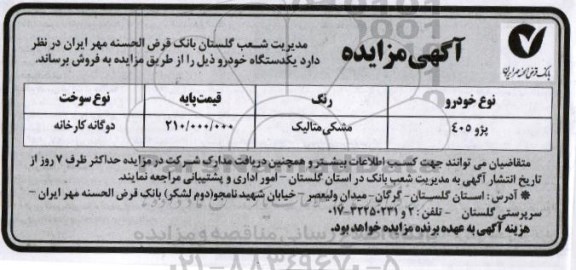 آگهی مزایده
بانک قرض الحسنه مهر ایران
مدیریت شعب گلستان بانک قرض الحسنه مهر ایران در نظر
دارد یکدستگاه خودرو ذیل را از طریق مزایده به فروش برساند.
نوع خودرو رنگ قیمت پایه نوع سوخت
پژو ٤٠٥ مشکی متالیک ۲۱۰/۰۰۰/۰۰۰ دوگانه کارخانه
متقاضیان می توانند جهت کسب اطلاعات بیشتر و همچنین دریافت مدارک شرکت در مزایده حداکثر ظرف ۷ روز از
تاریخ انتشار آگهی به مدیریت شعب بانک در استان گلستان - امور اداری و پشتیبانی مراجعه نمایند.
* آدرس: استان گلستان - گرگان - میدان ولیعصر - خیابان شهید نامجو(دوم لشکر) بانک قرض الحسنه مهر ایران -
سرپرستی گلستان - تلفن: ۲ و ۳۲۲۵۰۲۳۱-۰۱۷
هزینه آگهی به عهده برنده مزایده خواهد بود.
۰۲۱-۸۸۳۴۹۶۷۰-۵